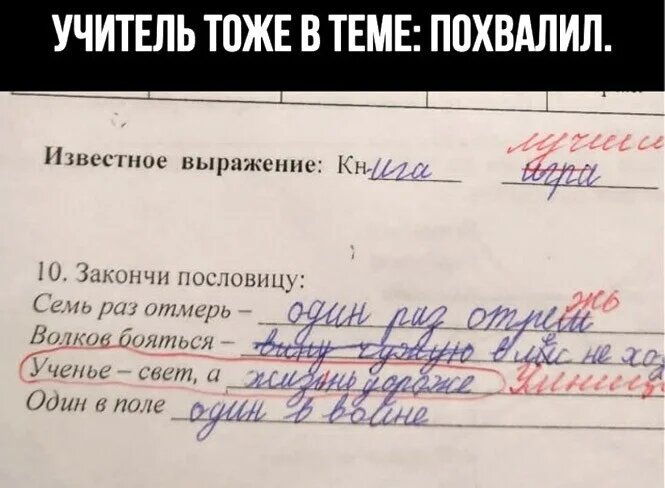 УЧИТЕЛЬ ТОЖЕ В ТЕМЕ: ПОХВАЛИЛ.
лучший
Известное выражение: Книга игра
10. Закончи пословицу:
Семь раз отмерь – один раз отрем жь
Волков бояться – вину чужую в лес не хо
Ученье – свет, а жизнь дороже Умниц
Один в поле один в войне